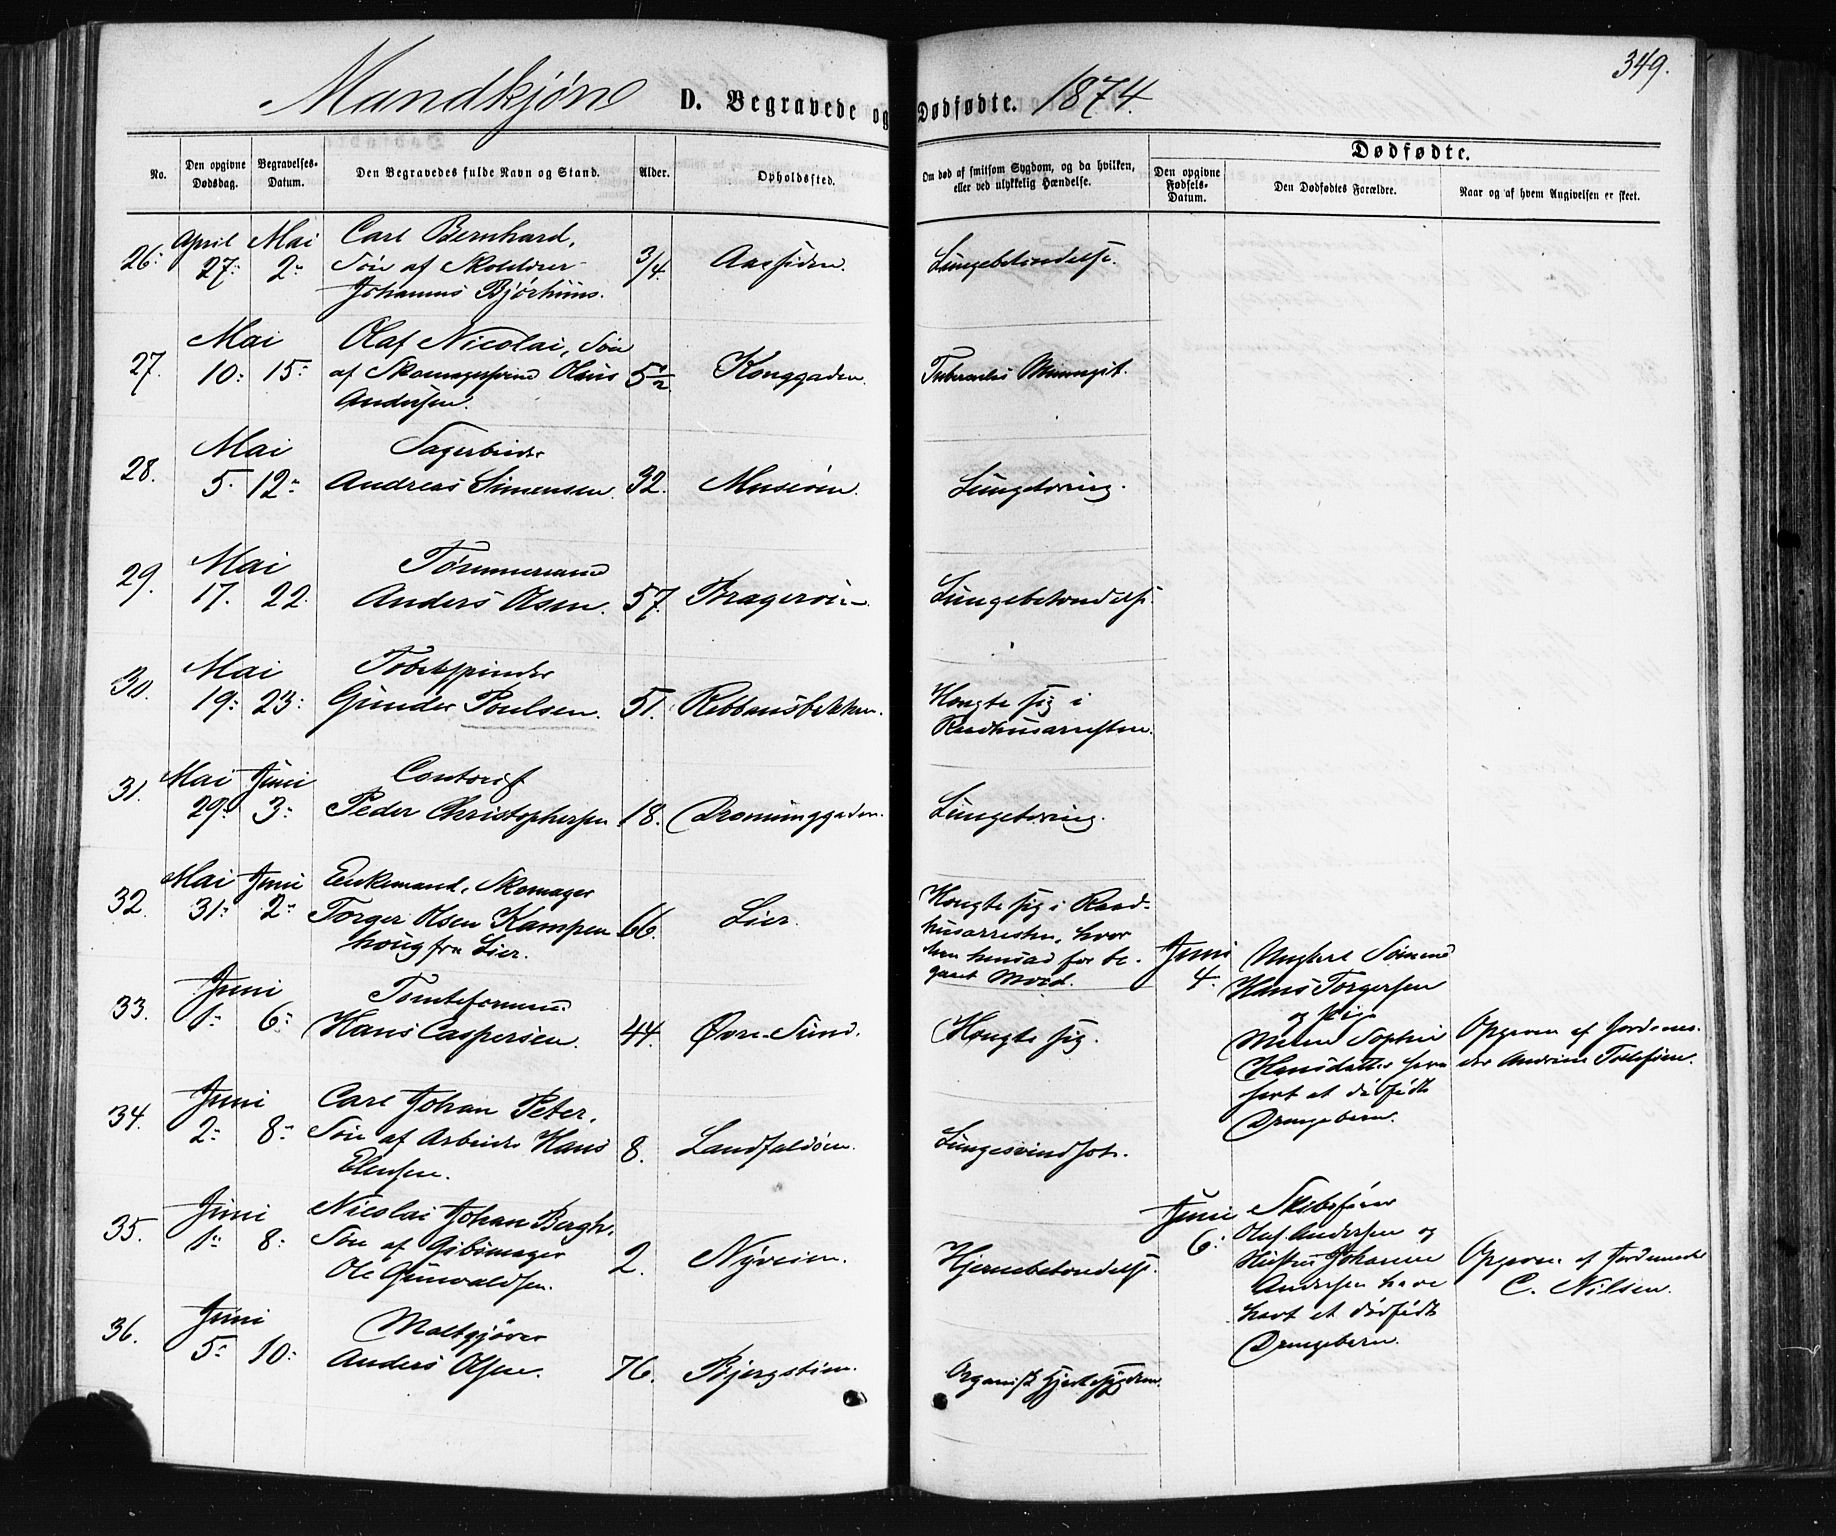 349.
Mandkjøn D. Begravede og Dødfødte. 1874.
No.
Den opgivne Dødsdag.
Begravelses-Datum.
Den Begravedes fulde Navn og Stand.
Alder.
Opholdssted.
Om død af smitsom Sygdom, og da hvilken,
eller ved ulykkelig Hændelse.
Dødfødte.
Den opgivne Fødsels-Datum.
Den Dødfødtes Forældre.
Naar og af hvem Angivelsen er skeet.
26. April 27. Mai 2.
Carl Bernhard,
Søn af
Johannes
3/4. Aassiden. Lungebetændelse.
27. Mai 10. 15.
Olaf Nicolai, Søn
af Skomagersvend Olaus
Andersen.
5 1/2 Konggaden. Tubercules Meningit.
28. Mai 5. 12.
Andreas Simensen. 32. Lungetæring.
29. Mai 17. 22.
Tømmermand
Anders Olsen. 57. Bragerøen. Lungebetændelse.
30. Mai 19. 23.
Tobakspinder
Gunder Poulsen. 51.
Hængte sig i
Raadhusarresten.
31. Mai 29. Juni 3.
Contorist
Peder Christophersen 18. Dronninggaden. Lungetæring.
32. Mai 31. Juni 2.
Enkemand, Skomager
Torger Olsen Kampen-
houg fra Lier.
66. Lier.
Hængte sig i Raad-
husarresten, hvor
han hensad for be-
gaaet Mord.
33. Juni 1. 6.
Hans Caspersen. 44. Øvre Sund. Hængte sig.
34. Juni 2. 8.
Carl Johan Peter,
Søn af Arbeider Hans
8. Landfaldøen. Lungesvindsot.
35. Juni 1. 8.
Nicolai Johan Bergh,
Søn af Gibsmager
Ole Grünvaldsen.
2. Nyveien. Hjernebetændelse.
36. Juni 5. 10.
Maltgjører
Anders Olsen. 76. Bjergstien. Organisk Hjertesygdom.
Juni 4.
Ungkarl Sømand
Hans Torgersen
og Pige
Sophie
Hansdatter have
havt et dødfødt
Drengebarn.
Opgiven af Jordemo-
der
Juni 6.
Skibsfører
Olaf Andersen og
Hustru Johanne
Andersen have
havt et dødfødt
Drengebarn.
Opgiven af Jordemoder
C. Nilsen.